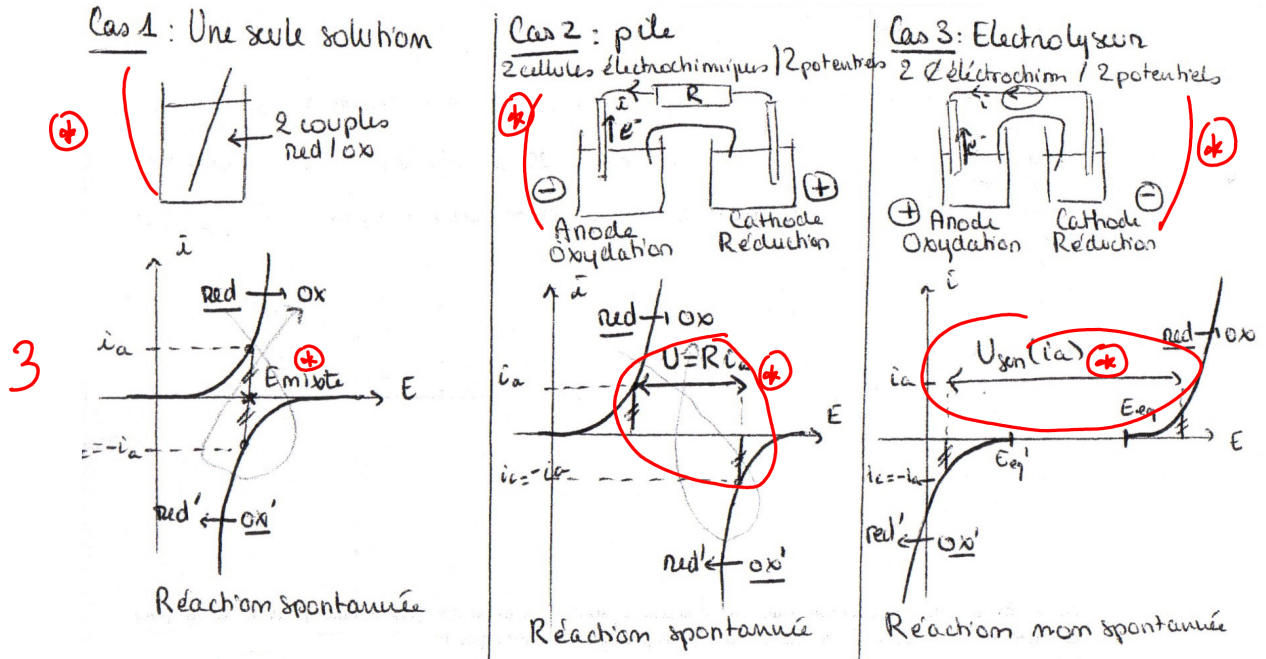 Cas 1 : Une seule solution
*
2 couples
red/ox
i
red → ox
ia
*
Emixte
E
3
ic=-ia
red' ← ox'
Réaction spontannée
Cas 2 : pile
2 cellules électrochimiques / 2 potentiels
*
i
R
e-
-
+
Anode
Oxydation
Cathode
Réduction
i
red → ox
U=Ria
*
ia
E
ic=-ia
red' ← ox'
Réaction spontannée
Cas 3 : Electrolyseur
2 ¢ éléctrochim / 2 potentiels
i
*
e-
+
-
Anode
Oxydation
Cathode
Réduction
i
red → ox
Uson(ia)
*
ia
Eeq
E
Eeq'
ic=-ia
red' ← ox'
Réaction non spontannée